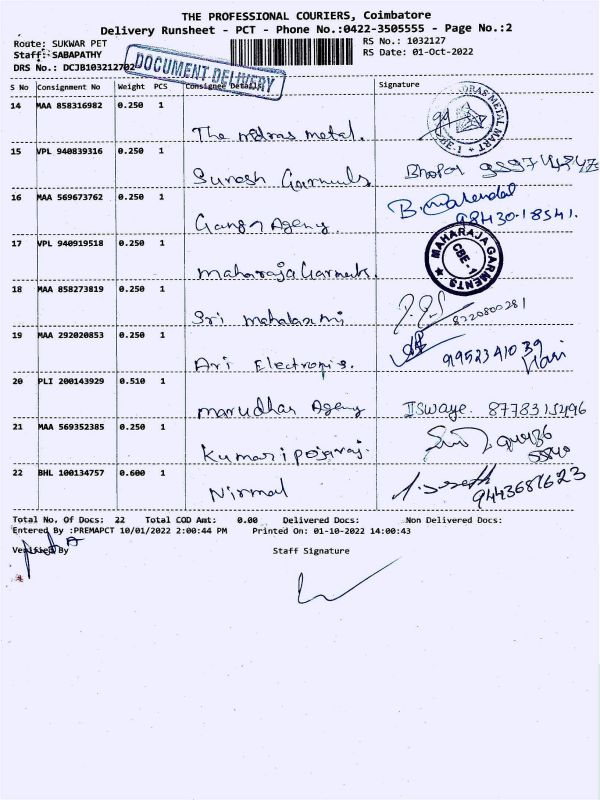 THE PROFESSIONAL COURIERS, Coimbatore
Delivery Runsheet - PCT - Phone No.:0422-3505555 - Page No.:2
Route: SUKWAR PET RS No.: 1032127
Staff: SABAPATHY RS Date: 01-Oct-2022
DRS No.: DCJB103212702
DOCUMENT DELIVERY
S No Consignment No Weight PCS Consignee Details Signature
14 MAA 858316982 0.250 1
The madras metal.
15 VPL 940839316 0.250 1
Suresh Garments
16 MAA 569673762 0.250 1
Ganga Agency. 98430-18541.
17 VPL 940919518 0.250 1
maharaja Garments. MAHARAJA GARMENTS CBE-1
18 MAA 858273819 0.250 1
Sri mahalaxmi 8220800281
19 MAA 292020853 0.250 1
Ari Electronis. 9952341039
Hari
20 PLI 200143929 0.510 1
marudhar Agency
21 MAA 569352385 0.250 1
Kumari
22 BHL 100134757 0.600 1
Nirmal 9443687623
Total No. Of Docs: 22 Total COD Amt: 0.00 Delivered Docs: Non Delivered Docs:
Entered By :PREMAPCT 10/01/2022 2:00:44 PM Printed On: 01-10-2022 14:00:43
Verified By Staff Signature